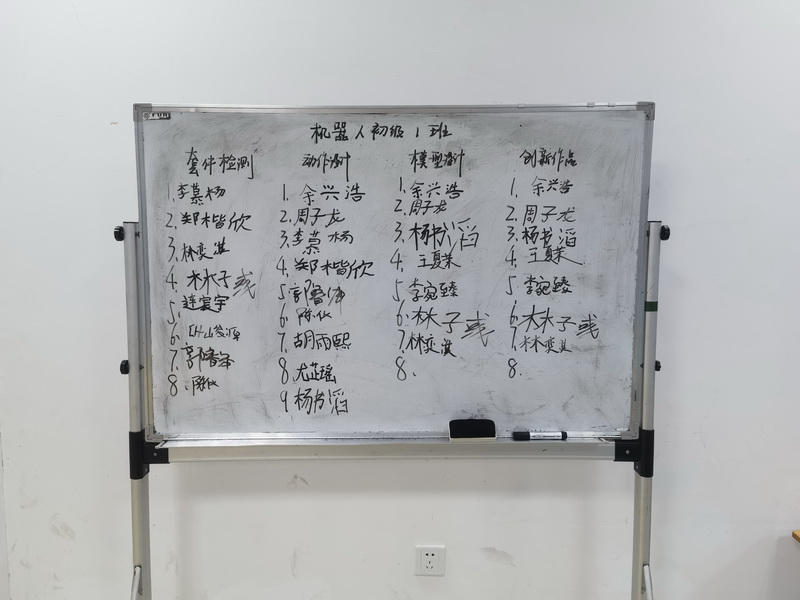 机器人初级1班
套件检测
1.李慕杨
2.郑楷欣
3.林奕淇
4.林子彧
5.连寰宇
6.
7.郭睿泽
8.陈
动作设计
1.余兴浩
2.周子龙
3.李慕杨
4.郑楷欣
5.郭睿泽
6.陈
7.胡雨熙
8.尤芷瑶
9.杨书滔
模型设计
1.余兴浩
2.周子龙
3.杨书滔
4.王
5.李宛臻
6.林子彧
7.林奕淇
8.
创新作品
1.余兴浩
2.周子龙
3.杨书滔
4.王
5.李宛臻
6.林子彧
7.林奕淇
8.